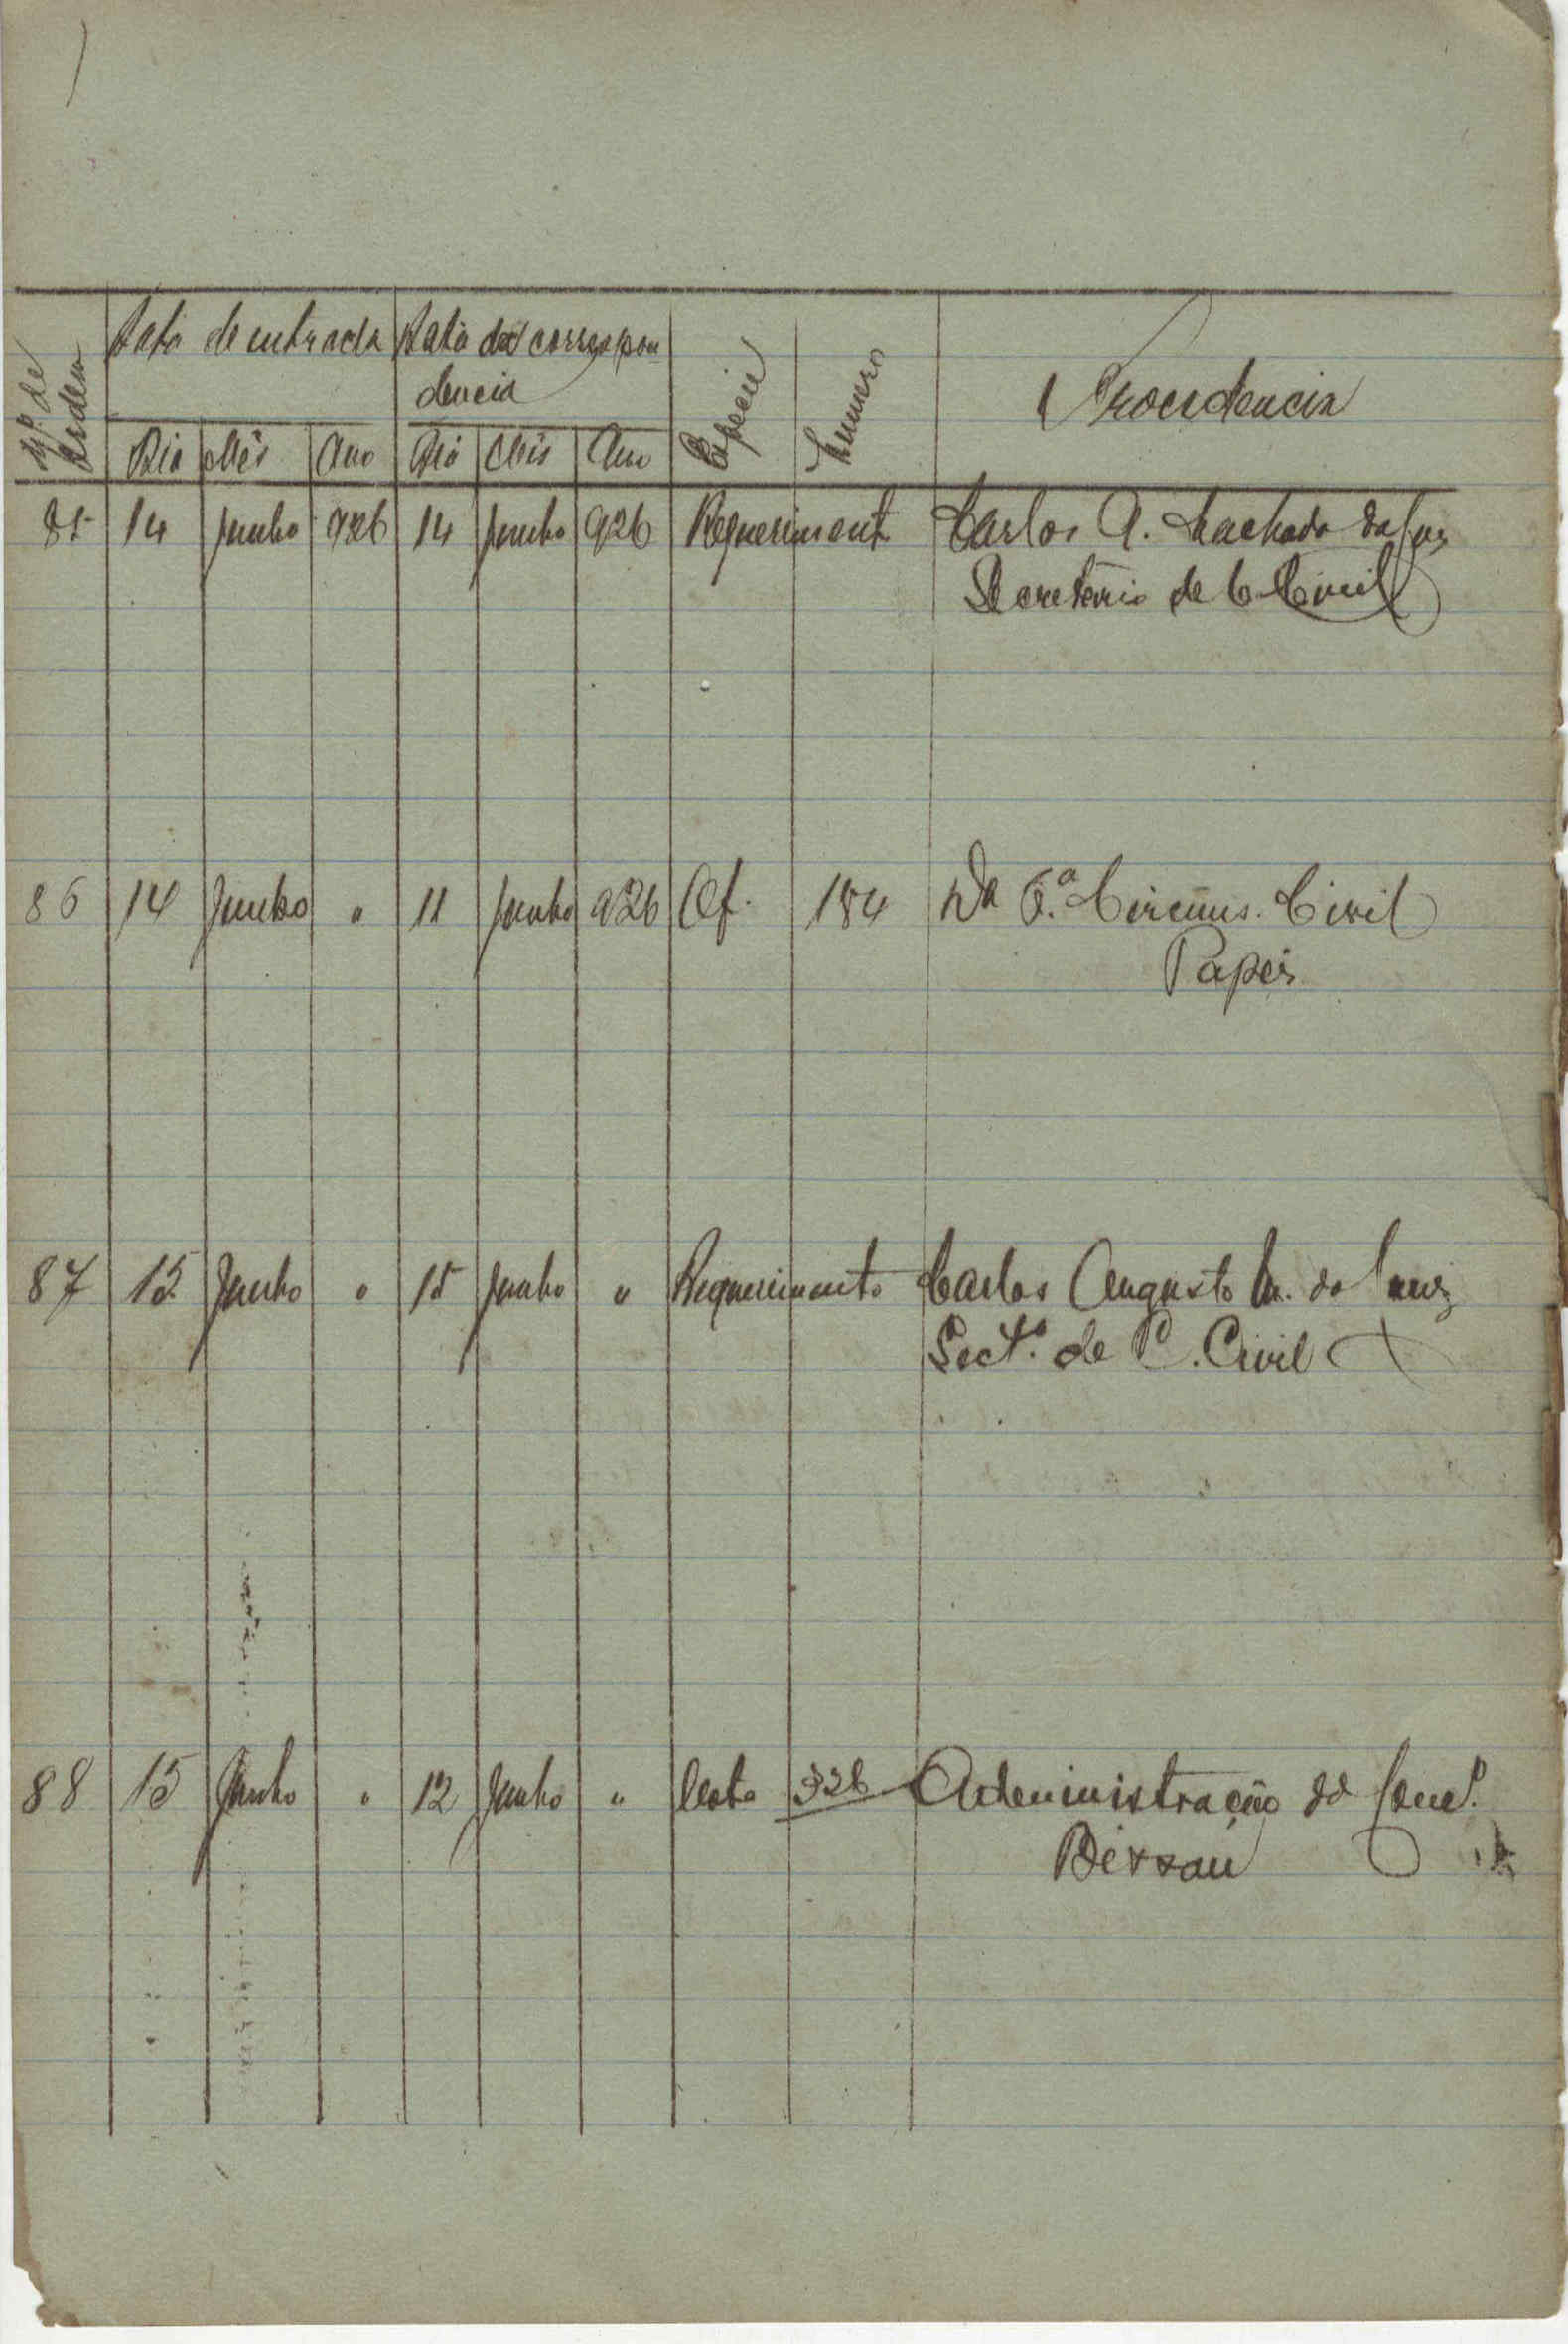 Nº de Ordem Data de entrada Data da correspon
dencia Especie Numero Procedencia
Dia Mês Ano Dia Mês Ano
85 14 Junho 926 14 Junho 926 Requeriment Carlos A. Machado da
Secretário de C. Civil
86 14 Junho " 11 Junho 926 Of. 184 Da Circuns. Civil
Papeis
87 15 Junho " 15 Junho " Requerimento Carlos Augusto M. da
Sect.º de C. Civil
88 15 Junho " 12 Junho " Nota 326 Administração do Conc.º
Bissau